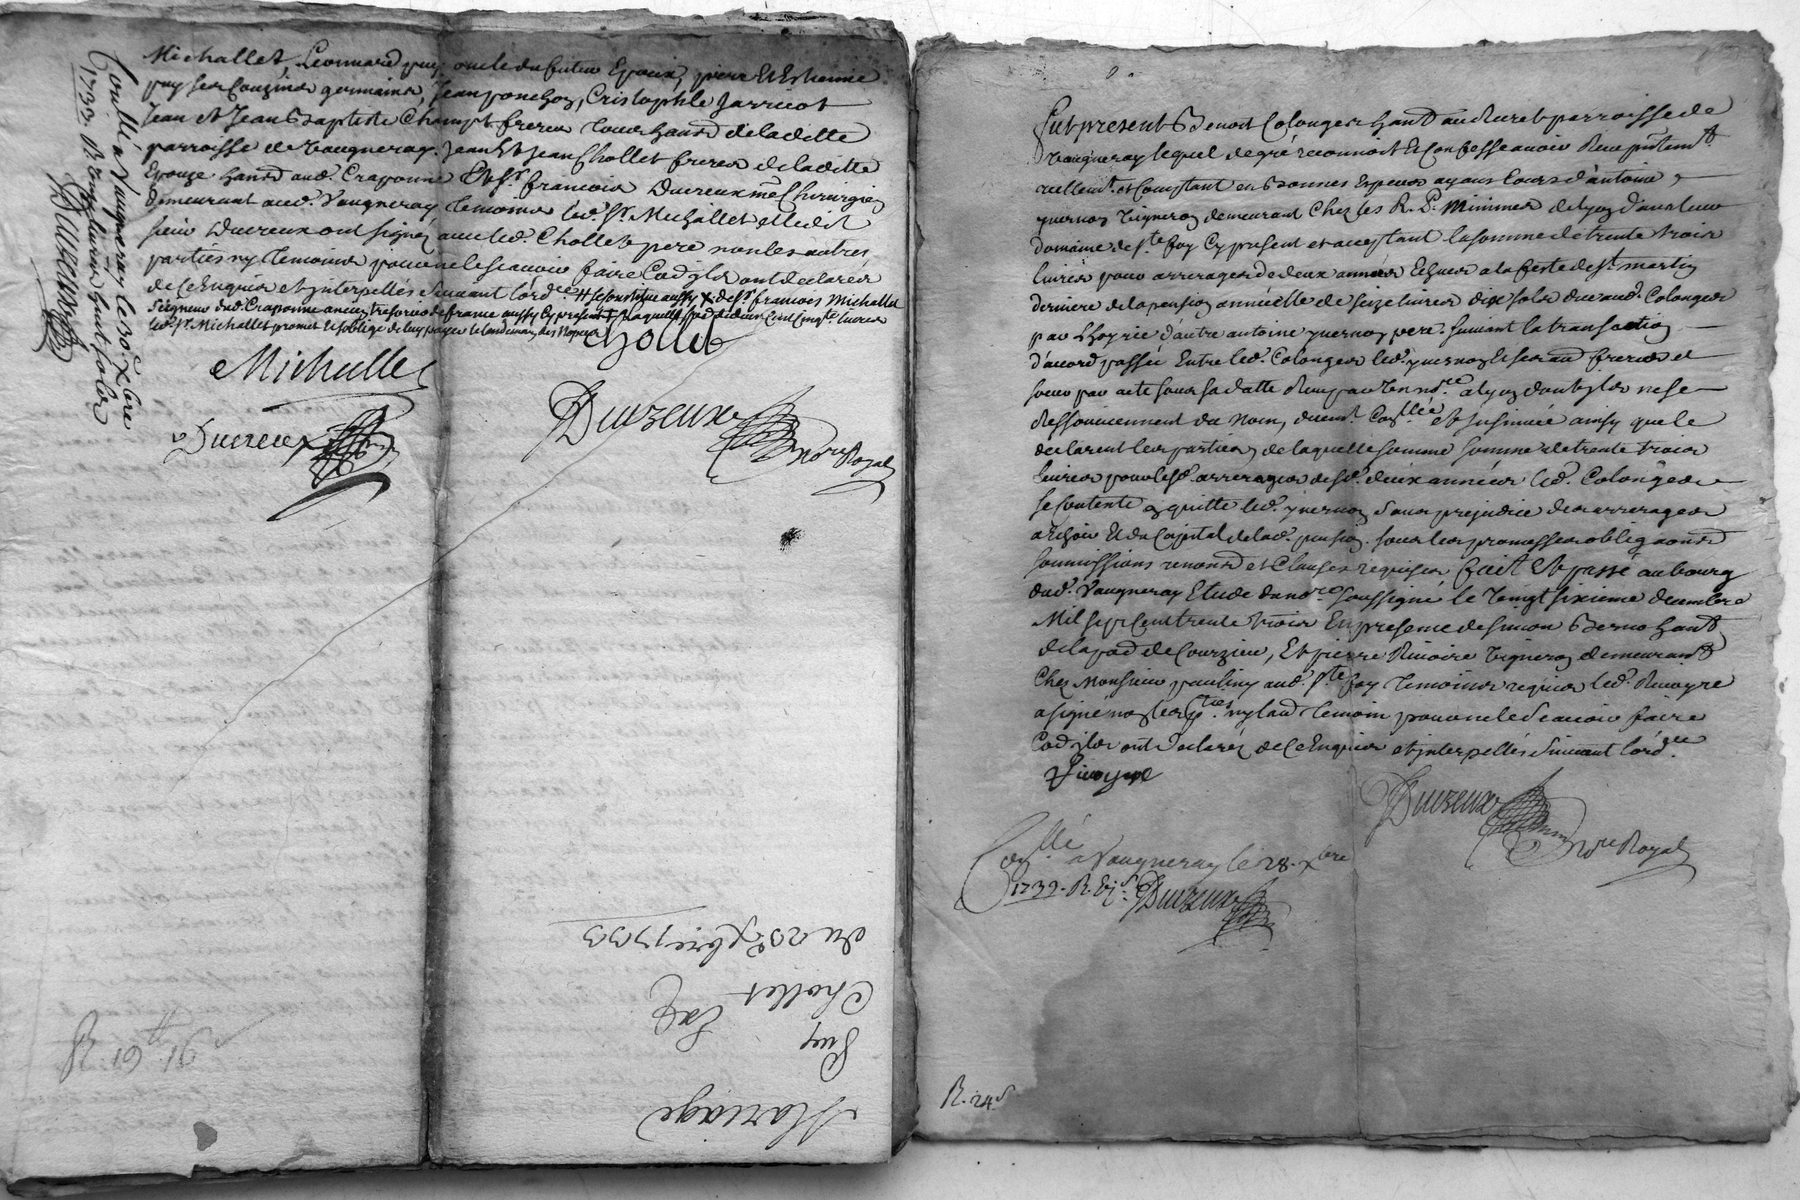 Michallet, Leonnard puy oncle du futur Epoux, pierre Et Estienne
puy ses Couzins germains, Jean ponchon, Cristophle Jarricot
Jean et Jean Baptiste Champt freres tous hands de laditte
parroisse de Vaugneray. Jean Et Jean Chollet freres de laditte
Epouze hands aud. Craponne Et sr. francois Ducreux me Chirurgien
demeurant aud. Vaugneray temoins led. sr. Michallet et ledit
sieur Ducreux ont signéz avec led. Chollet pere non les autres
parties ny temoins pour ne le scavoir faire Co'd ils ont declarés
de ce Enquis et interpellés suivant lordce. # se constitue aussy de sr. francois Michallet
seigneur dud. Craponne ancien tresorier de france aussy Cy present
led. sr. Michallet promet et soblige de luy payer le landemain des Nopces
Chollet
Michallet
Ducreux
Ducreux
nore Royal
Conllé a Vaugneray le 30e. xbre
1733. R. douze livres huit sols
Ducreux
du 23e. xbre 1733
Chollet
Puy
Mariage
Fut present Benoit Colonges hand au Buret parroisse de
Vaugneray lequel de gré reconnoit Et Confesse avoir Receu pntemt
reellemt. et Comptant en Bonnes Especes ayans Cours d'antoine
yvernay Vigneron demeurant Chez les R. P. Minimes de Lyon dans leur
domaine de Ste foy Cy present et acceptant la somme de trente trois
livres pour arrerages de deux années Echues a la feste de st. martin
derniere de la pension annuelle de seize livres dix sols due aud. Colonges
par Lhoyrie d'autre antoine yvernay pere. suivant la transaction
d'acord passée Entre led. Colonges led. yvernay et ses aud freres et
soeur par acte sous sa datte Receu par nore. a Lyon dont ils ne se
ressouviennent du Nom, duemt. Conllée et insinuée ainsy que le
declarent les parties, de laquelle somme somme de trente trois
livres pour lesd. arrerages desd. deux années led. Colonges
se Contente Et quitte led. yvernay sans prejudice des arrerages
a Echoir Et du Capital de lad. pension. sous les promesses obligaons
soumissions renonds et Clauses requises fait Et passé au bourg
dud. Vaugneray Etude du nore soussigné le vingt sixieme decembre
Mil sept Cent trente trois En presence de simon Berne hand
de la pad de Courzieu, Et pierre Rivoire Vigneron demeurand
Chez Monsieur pauliny aud. Ste foy temoins requis led. Rivoyre
a signé non les pties. ny laud temoin pour ne le scavoir faire
Co'd ils ont declaréz de ce Enquis et interpellés suivant lordce
Rivoyre
Ducreux
nore Royal
Conllé a Vaugneray le 28. xbre
1733. R. Ducreux
R. 24s